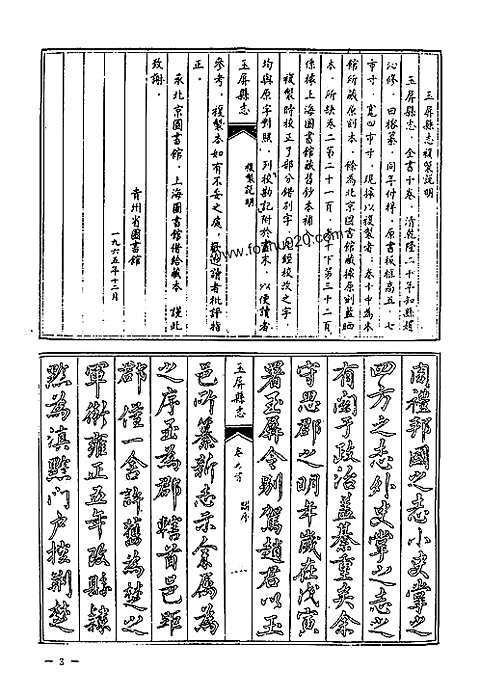 玉屏縣志複製説明
玉屏縣志，全書十卷，清乾隆二十年知縣趙
沁修，田榕纂，同年付梓，原書板框高五．七
市寸，寬四市寸，現據以複製者：卷十中為本
館所藏原刻本，餘為北京圖書館藏據原刻藍晒
本，所缺卷二第二十一頁，卷十下第三十二頁，
係據上海圖書館藏舊鈔本補
複製時校正了部分錯别字，經校改之字，
均與原字對照，列校勘記附於書末，以便讀者
玉屏縣志
複製説明
參考，複製本如有不妥之處，歡迎讀者批評指
正。
承北京圖書館，上海圖書館借給藏本，謹此
致謝。
貴州省圖書館
一九六五年十二月
www.fomhua20.com
周禮邦國之志小史掌之
四方之志外史掌之志之
有関于政治蓋綦重矣余
守思郡之明年歲在戊寅
署玉屏令别駕趙君以玉
玉屏縣志
卷之首
邑所纂新志示余屬為
之序玉為郡轄首邑距
郡僅一舍許舊為楚之
軍衛雍正五年改縣隸
黔為滇黔門户控荆楚
— 3 —